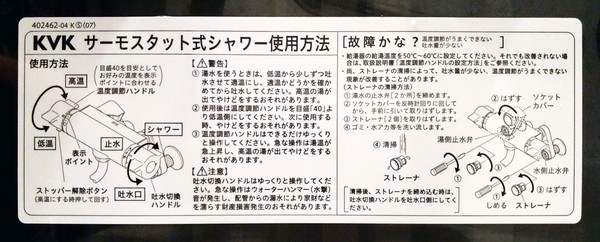 402462-04 K Ⓢ(07)
KVK サーモスタット式シャワー使用方法
使用方法
(目盛40を目安として
お好みの温度を表示
ポイントに合わせる)
温度調節ハンドル
高温
低温
表示
ポイント
止水
シャワー
吐水口
吐水切換
ハンドル
ストッパー解除ボタン
(高温にする時押して回す)
【⚠警告】
① 湯水を使うときは、低温から少しずつ吐
水させて適温にし、適温かどうかを確か
めてから吐水してください。高温の湯が
出てやけどをするおそれがあります。
② 使用後は温度調節ハンドルを目盛「40」よ
り低温側にしてください。次に使用する
時、やけどをするおそれがあります。
③ 温度調節ハンドルはできるだけゆっくり
と操作してください。急な操作は湯温が
急上昇し、高温の湯が出てやけどをする
おそれがあります。
【⚠注意】
吐水切換ハンドルはゆっくりと操作してくだ
さい。急な操作はウォーターハンマー(水撃)
音が発生し、配管からの漏水により家財など
を濡らす財産損害発生のおそれがあります。
[故障かな? 温度調節がうまくできない
吐水量が少ない ]
・給湯器の給湯温度を50℃～60℃に設定してください。それでも改善されない場
合は、取扱説明書「温度調節ハンドルの設定方法」をご参照ください。
・尚、ストレーナの清掃によって、吐水量が少ない、温度調節がうまくできない
現象が改善することがあります。
(ストレーナの清掃方法)
① 湯水の止水弁[2か所]を締めます。
② ソケットカバーを反時計回りに回して
から、手前に引いて取りはずします。
③ ストレーナ[2個]を取りはずします。
④ ゴミ・水アカ等を洗い流します。
② はずす
ソケット
カバー
④ 清掃
ストレーナ
湯側止水弁
①
③ はずす
ストレーナ
水側止水弁
①
しめる
③ はずす
ストレーナ
[清掃後、ストレーナを締め込む時は、
吐水切換ハンドルを吐水口側にしてください。]